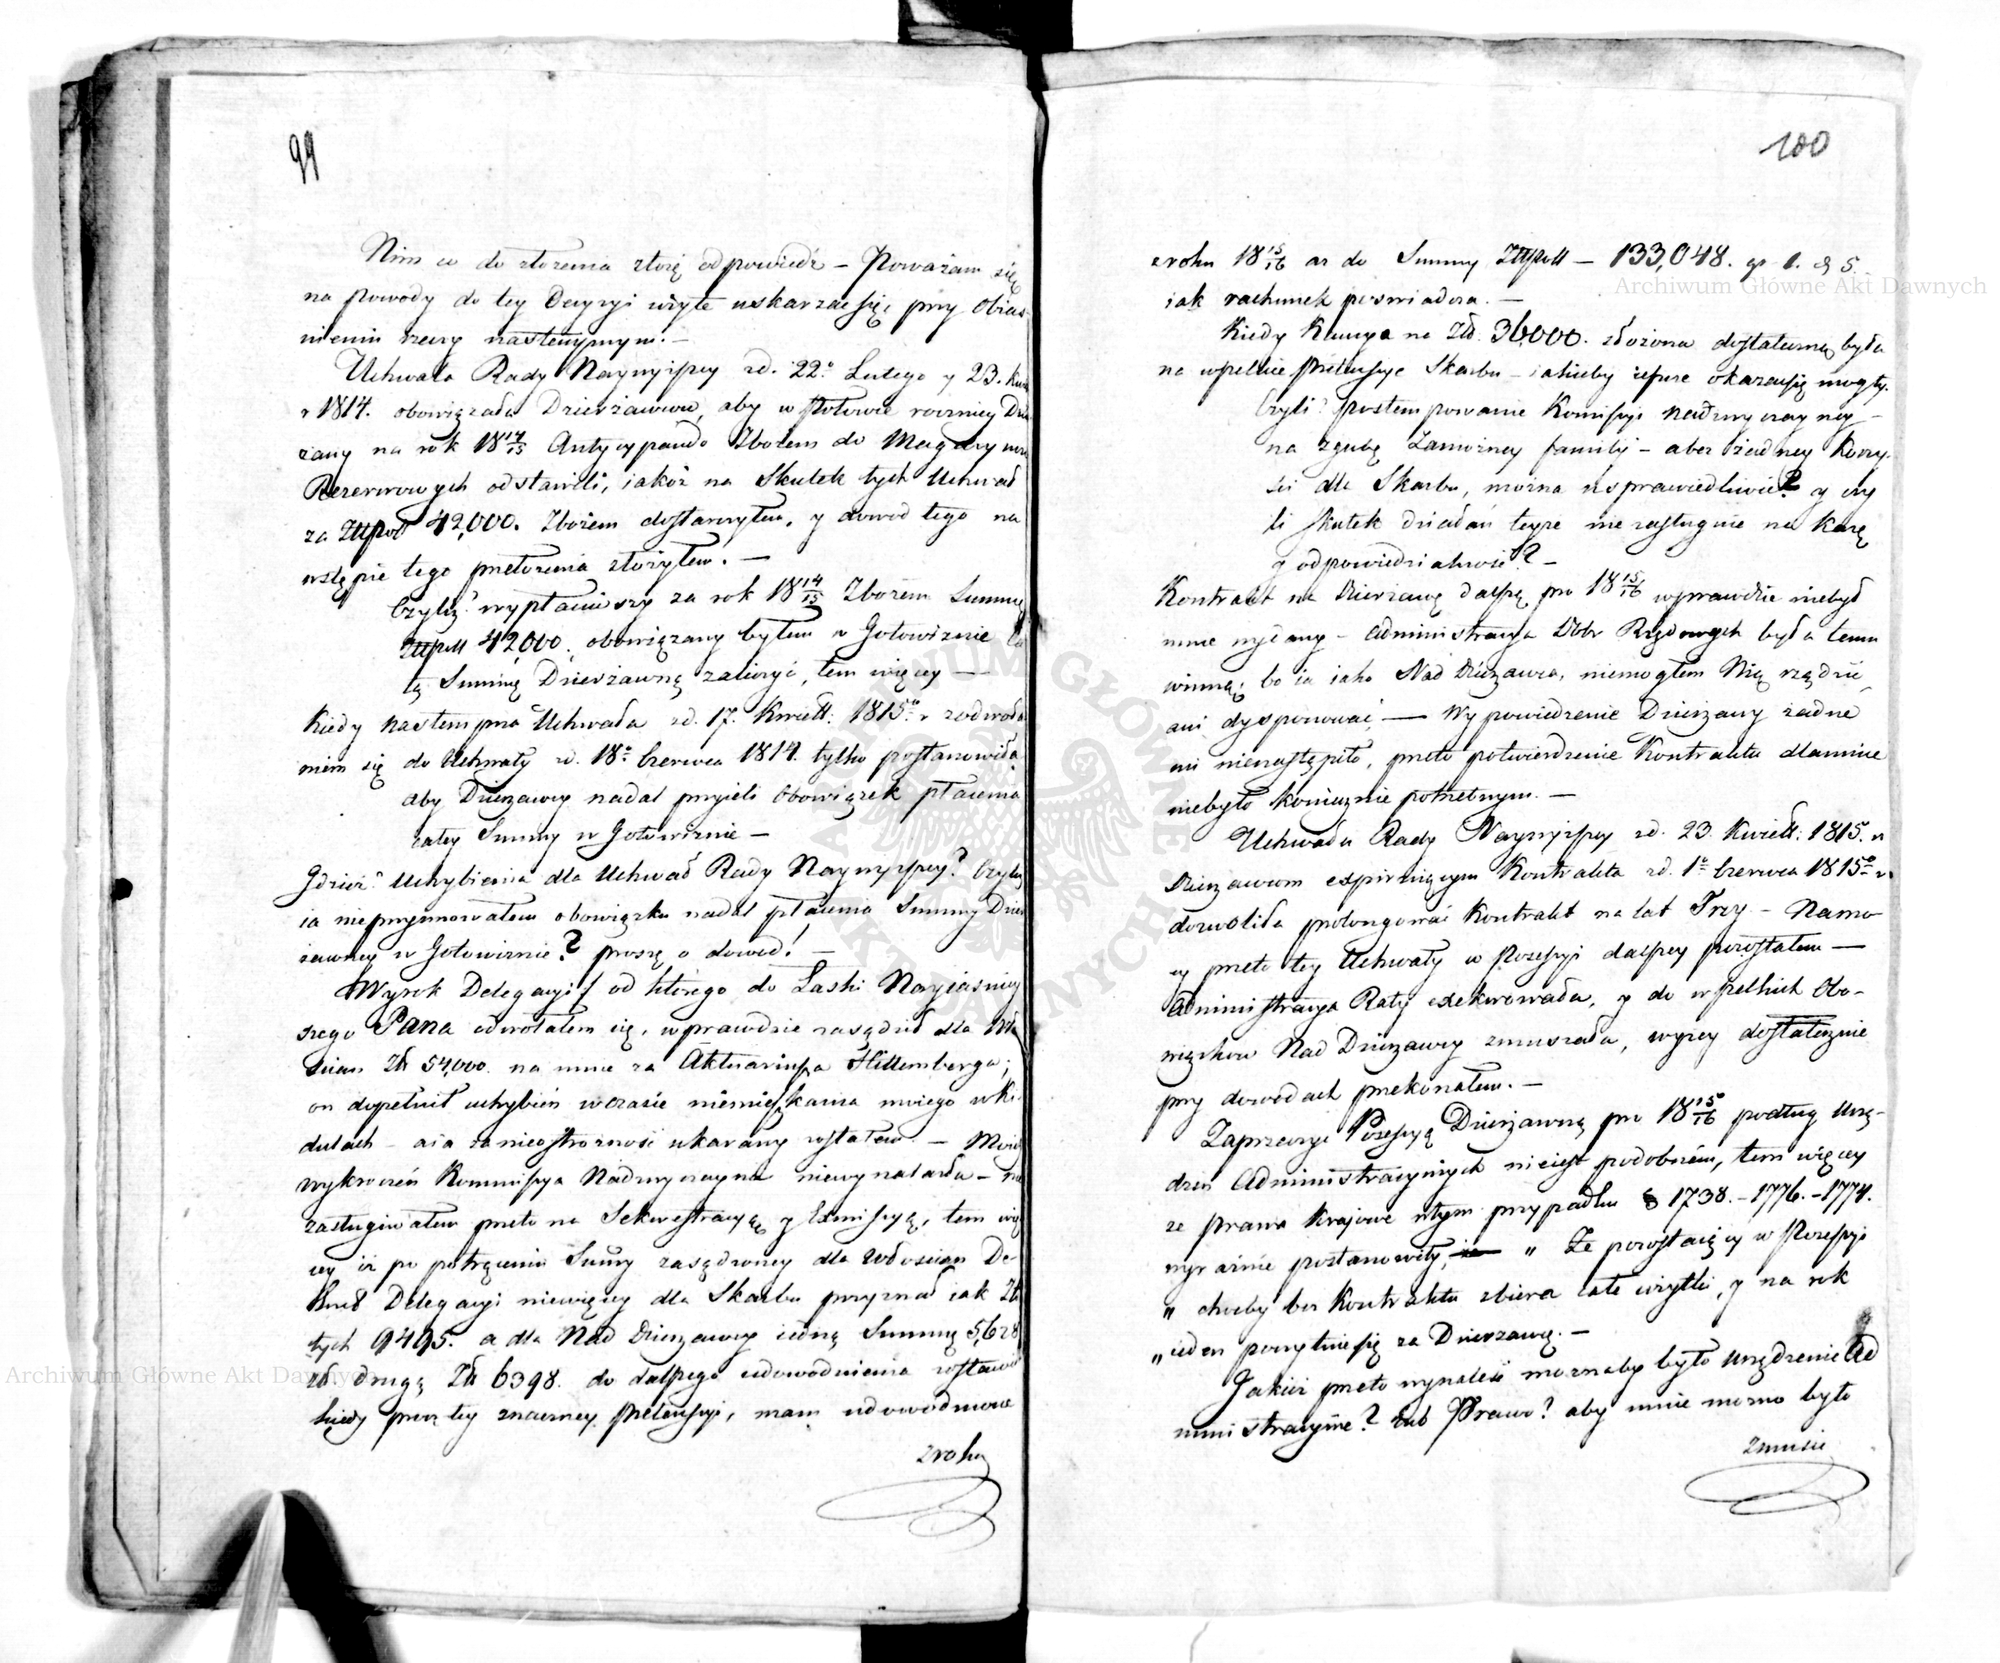 99
Nim co do złożenia złożę odpowiedź – Poważam się
na powody do tey Decyzyi użyte uskarzać się, przy Obias-
nieniu rzeczy następnym. –
Uchwała Rady Naywyższey zd. 22º Lutego y 23. Kwie
r 1814. obowiązała Dzierżawców, aby w połowie roczney Dzier
żawy na rok 18 14/15 Antycypando Zbożem do Magazynów
Rezerwowych odstawili, iakoż na Skutek tych Uchwał
za Złłpol 42,000. Zbożem dostarczyłem, y dowod tego na
wstępie tego przełożenia złożyłem. –
Czyliż? wypłaciwszy za rok 18 14/15 Zbożem Summę
Złłpoll 42,000. obowiązany byłem w Gotowiznie ca
łą Summę Dzierżawną zaliczyć, tem więcey –
kiedy następna Uchwała zd. 17. Kwiett: 1815º r z odwoła
niem się do Uchwały zd. 18º Czerwca 1814. tylko postanowiła
aby Dzierzawcy nadal przyieli Obowiązek płacenia
całey Summy w Gotowiznie –
Gdzież? Uchybienia dla Uchwał Rady Naywyższey? Czyliż
ia nieprzyimowałem obowiązku nadal płacenia Summy Dzier
żawney w Gotowiznie? proszę o dowod! –
Wyrok Delegacyi / od którego do Łaski Nayiaśniey
szego Pana odwołałem się, wprawdzie zasądził dla Wło
ścian Zł 54,000. na mnie za Aktuariusza Hittemberga;
on dopełnił uchybień w czasie niemieszkania moiego w Ki
dulach – a ia za nieostrożność ukarany zostałem. – Moich
wykroczeń Kommissya Nadzwyczayna niewynalazła – nie
zasługiwałem przeto na Sekwestracyą, y Exmissyą, tem wię
cey iż po potrąceniu Summy zasądzoney dla Włościan De
kret Delegacyi niewięcey dla Skarbu przyznał iak Zło
tych 9495. a dla Nad Dzierzawcy iedną Summę 5,628
zł. drugą Zł 6398. do dalszego udowodnienia zostawił
kiedy prócz tey znaczney Pretensyi, mam udowodnione
z roku
100
z roku 18 15/16 aż do Summy Złłpoll – 133,048. gr 1. d 5. –
iak rachunek poswiadcza. –
Kiedy Kaucya na Złł. 36,000. złożona dostateczną była
na wszelkie Pretensye Skarbu – iakieby iescze okazać się mogły.
Czyli? postempowanie Komissyi nadzwyczayney –
na zgubę Zamożney familij – a bez żadney Korzy-
ści dla Skarbu, można usprawiedliwić? y czy
li skutek działań teyże nie zasługuie na karę
y odpowiedzialność? –
Kontrakt na Dzierżawę dalszą pro 18 15/16 wprawdzie niebył
mnie wydany – Administracya Dobr Rządowych była temu
winną; bo ia iako Nad Dzierzawca, niemogłem Nią rządzić,
ani dysponować, – Wypowiedzenie Dzierzawy żadne
mi nienastąpiło, przeto potwierdzenie Kontraktu dlamnie
niebyło koniecznie potrzebnym. –
Uchwała Rady Naywyższey zd. 23. Kwiett: 1815. r
Dzierzawcom expiruiącym Kontrakta zd. 1º Czerwca 1815º r.
dozwoliła prolongować Kontrakt na lat Trzy – Na mo-
cy przeto tey Uchwały w Possessyi dalszey pozostałem –
Administracya Raty exekwowała, y do wszelkich Obo-
wiązków Nad Dzierzawcy zmuszała, wyżey dostatecznie
przy dowodach przekonałem. –
Zaprzeczyć Possessyą Dzierżawną pro 18 15/16 podług Urzą-
dzeń Administracyinych nieiest podobném, tem więcey
ze prawa kraiowe w tym przypadku § 1738. – 1776. – 1774.
wyraźnie postanowiły, „ Że pozostaiący w Possessyi
„ choćby bez Kontraktu zbiera całe użytki, y na rok
„ ieden poczytuie się za Dzierzawcę. –
Jakież przeto wynaleść możnaby było urządzenie Ad
ministracyine? lub Prawo? aby mnie można było
zmusić